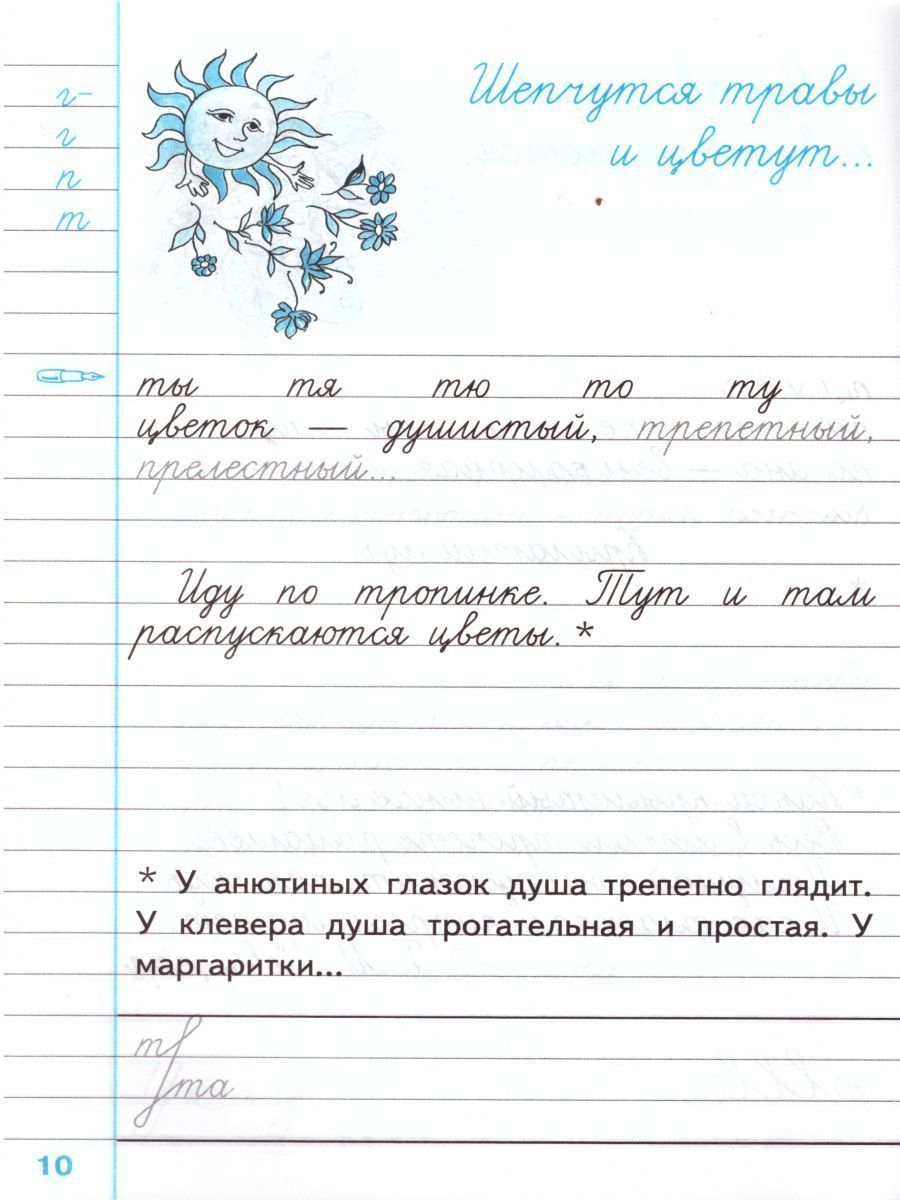 Шепчутся травы
и цветут...
г-
г
п
т
ты тя тю то ту
цветок — душистый, трепетный,
прелестный...
Иду по тропинке. Тут и там
распускаются цветы. *
* У анютиных глазок душа трепетно глядит.
У клевера душа трогательная и простая. У
маргаритки...
т
та
10